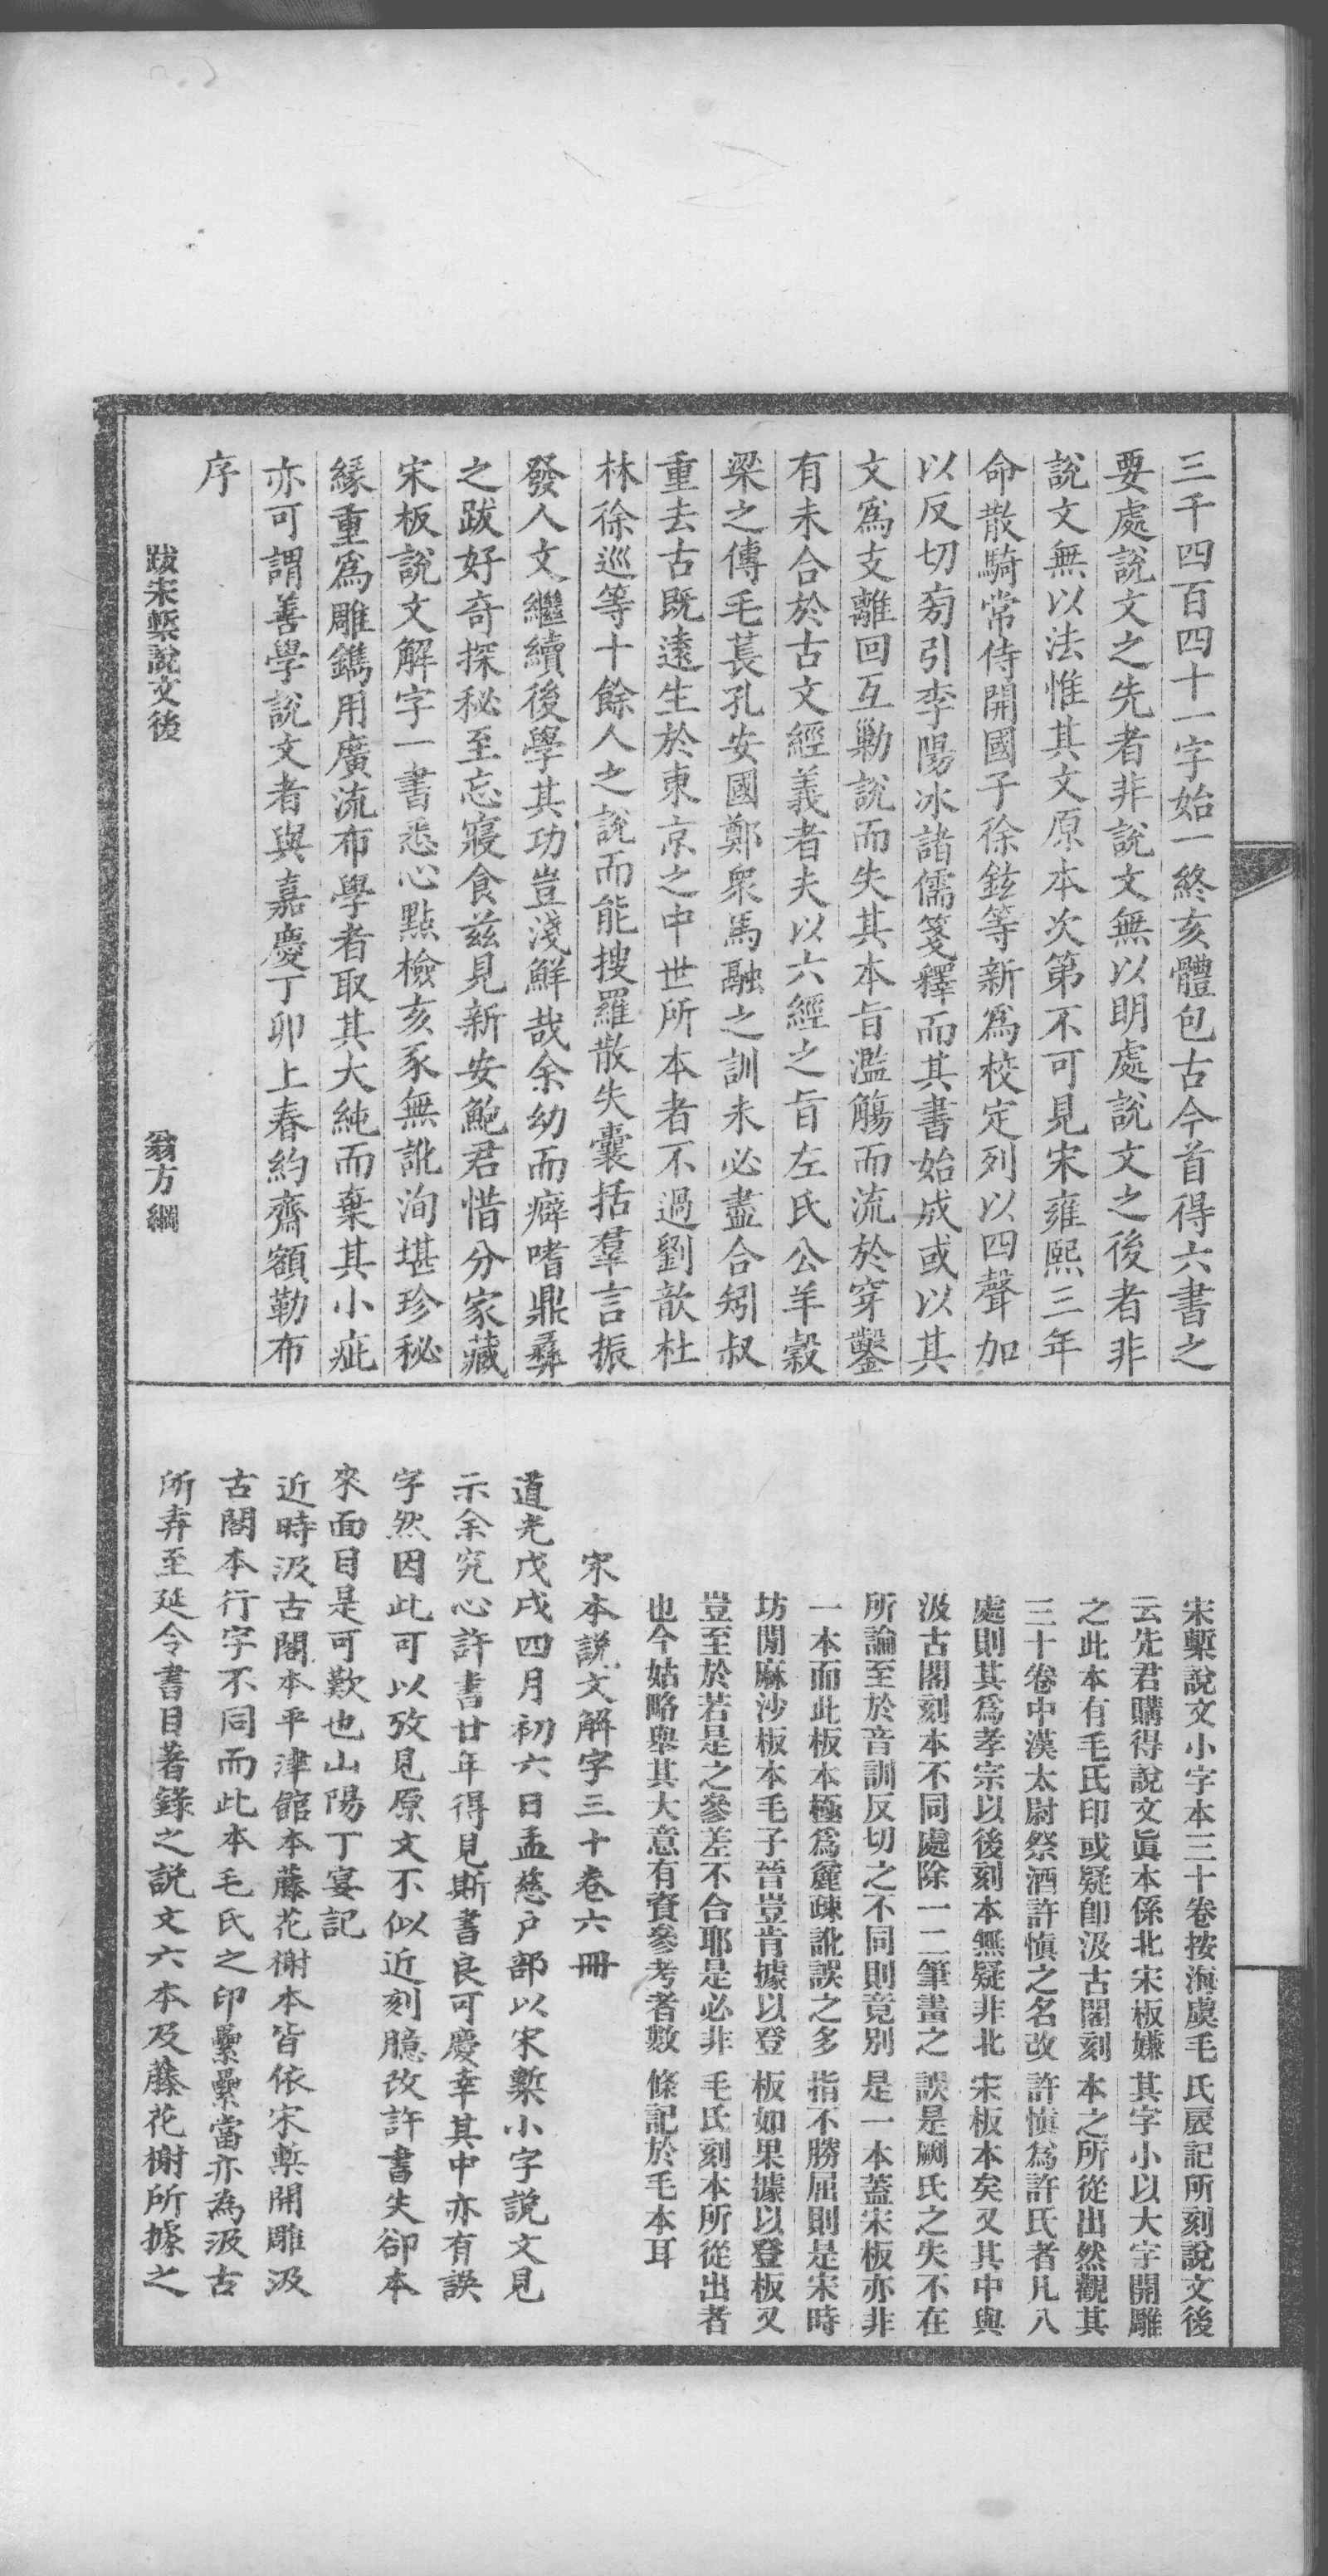 三千四百四十一字始一終亥體包古今首得六書之
要處說文之先者非說文無以明處說文之後者非
說文無以法惟其文原本次第不可見宋雍熙三年
命散騎常侍開國子徐鉉等新爲校定列以四聲加
以反切㫄引李陽冰諸儒箋釋而其書始成或以其
文爲支離回互勦說而失其本旨濫觴而流於穿鑿
有未合於古文經義者夫以六經之旨左氏公羊穀
梁之傳毛萇孔安國鄭衆馬融之訓未必盡合矧叔
重去古旣遠生於東京之中世所本者不過劉歆杜
林徐巡等十餘人之說而能搜羅散失囊括羣言振
發人文繼續後學其功豈淺鮮哉余幼而癖嗜鼎彝
之跋好奇探秘至忘寢食兹見新安鮑君惜分家藏
宋板說文解字一書悉心點檢亥豕無訛洵堪珍秘
緣重爲雕鐫用廣流布學者取其大純而棄其小疵
亦可謂善學說文者與嘉慶丁卯上春約齋額勒布
序
跋宋槧說文後　翁方綱
宋槧說文小字本三十卷按海虞毛氏扆記所刻說文後
云先君購得說文眞本係北宋板嫌其字小以大字開雕
之此本有毛氏印或疑卽汲古閣刻本之所從出然觀其
三十卷中漢太尉祭酒許愼之名改許愼爲許氏者凡八
處則其爲孝宗以後刻本無疑非北宋板本矣又其中與
汲古閣刻本不同處除一二筆畫之誤是剜氏之失不在
所論至於音訓反切之不同則竟別是一本蓋宋板亦非
一本而此板本極爲麤疎訛誤之多指不勝屈則是宋時
坊閒麻沙板本毛子晉豈肯據以登板如果據以登板又
豈至於若是之參差不合耶是必非毛氏刻本所從出者
也今姑略舉其大意有資參考者數條記於毛本耳
宋本說文解字三十卷六冊
道光戊戌四月初六日孟慈户部以宋槧小字說文見
示余究心許書廿年得見斯書良可慶幸其中亦有誤
字然因此可以攷見原文不似近刻臆改許書失卻本
來面目是可歎也山陽丁宴記
近時汲古閣本平津館本藤花榭本皆依宋槧開雕汲
古閣本行字不同而此本毛氏之印纍纍當亦為汲古
所弆至延令書目著錄之說文六本及藤花榭所據之